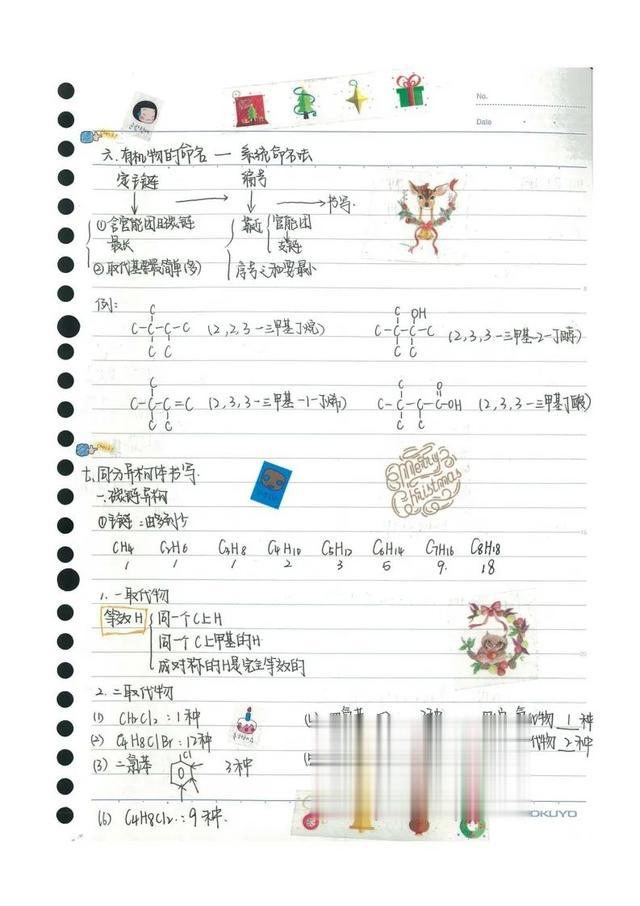 No.
Date
六.有机物的命名 — 系统命名法
定主链 → 编号 → 书写.
①含官能团且碳链最长
②取代基要最简单(多)
靠近 官能团
支链
序号之和要最小
例:
C
C-C-C-C (2,2,3-三甲基丁烷)
C C
C OH
C-C-C-C (2,3,3-三甲基-2-丁醇)
C C
C
C-C-C=C (2,3,3-三甲基-1-丁烯)
C C
C O
C-C-C-C-OH (2,3,3-三甲基丁酸)
C C
七.同分异构体书写.
一.碳链异构
①主链:由多到少
CH4 C2H6 C3H8 C4H10 C5H12 C6H14 C7H16 C8H18
1 1 1 2 3 5 9. 18
1. 一取代物
等效H
同一个C上H
同一个C上甲基的H
成对称的H是完全等效的
2. 二取代物
(1) CH2Cl2:1种
(2) C4H8ClBr:12种
(3) 二氯苯 Cl 3种
代物 1 种
代物 2 种
(6) C4H8Cl2:9种.
Merry Christmas
KOKUYO